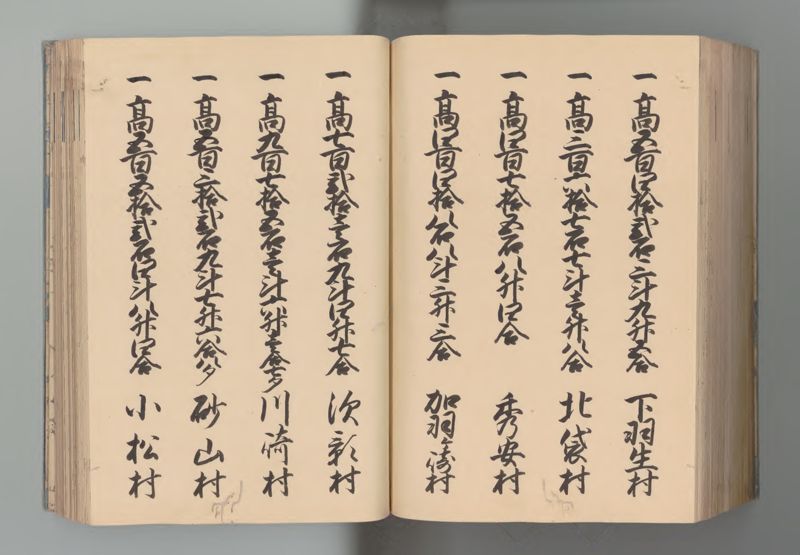 一 高五百四拾弐石三斗九升五合 下羽生村
一 高三百六拾七石七斗壱升八合 北袋村
一 高四百七拾五石八升四合 秀安村
一 高四百四拾八石八斗三升三合 加羽ヶ崎村
一 高七百弐拾壱石九斗四升七合 須影村
一 高九百七拾五石壱斗六升壱合七夕 川崎村
一 高五百三拾弐石九斗七升六合八夕 砂山村
一 高五百五拾弐石四斗八升四合 小松村